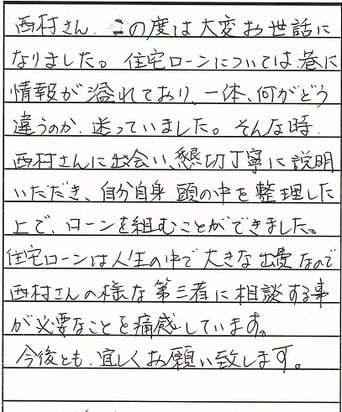 西村さん、この度は大変お世話に
なりました。住宅ローンについては、巷に
情報が溢れており、一体、何がどう
違うのか、迷っていました。そんな時、
西村さんに出会い、懇切丁寧に説明
いただき、自分自身 頭の中を整理した
上で、ローンを組むことができました。
住宅ローンは人生の中で大きな出費なので
西村さんの様な第三者に相談する事
が必要なことを痛感しています。
今後とも、宜しくお願い致します。